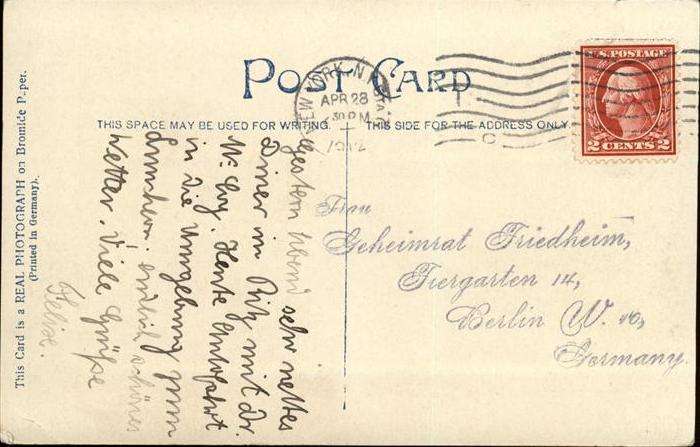 POST CARD
THIS SPACE MAY BE USED FOR WRITING.
THIS SIDE FOR THE ADDRESS ONLY
NEW YORK, N.Y.
STA.
APR 28
30 PM
1912
C
U.S. POSTAGE
2 CENTS 2
This Card is a REAL PHOTOGRAPH on Bromide Paper.
(Printed in Germany).
gestern Abend sehr nettes
Diner im Ritz mit Dr.
Mc Evy. Heute Autofahrt
in die Umgebung zum
Luncheon. endlich schönes
Wetter. Viele Grüße
Felix.
Frau
Geheimrat Friedheim,
Tiergarten 14,
Berlin W. 10,
Germany